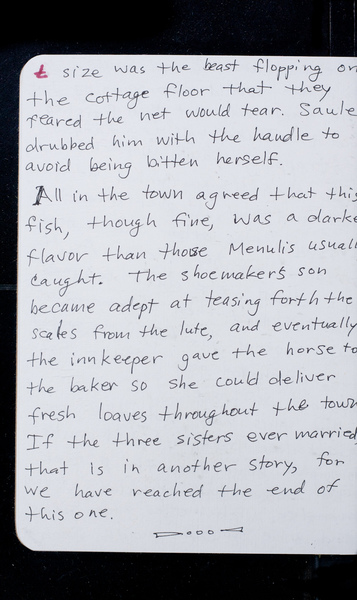 t size was the beast flopping on
the cottage floor that they
feared the net would tear. Saule
drubbed him with the handle to
avoid being bitten herself.
All in the town agreed that this
fish, though fine, was a darke
flavor than those Menulis usuall
caught. The shoemaker's son
became adept at teasing forth the
scales from the lute, and eventually
the innkeeper gave the horse to
the baker so she could deliver
fresh loaves throughout the town
If the three sisters ever married
that is in another story, for
we have reached the end of
this one.